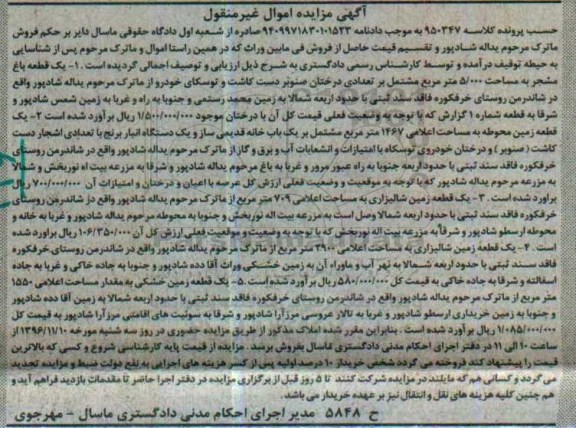 آگهی مزایده اموال غیرمنقول
حسب پرونده کلاسه ۹۵۰۳۴۷ به موجب دادنامه ۱۰۱۵۲۳-۹۴۰۹۹۷۱۸۳ صادره از شعبه اول دادگاه حقوقی ماسال دایر بر حکم فروش
ماترک مرحوم یداله شادپور و تقسیم قیمت حاصل از فروش فی مابین وراث که در همین راستا اموال و ماترک مرحوم پس از شناسایی
به حیطه توقیف در آمده و توسط کارشناس رسمی دادگستری به شرح ذیل ارزیابی و توصیف اجمالی گردیده است. ۱- یک قطعه باغ
مشجر به مساحت ۵/۰۰۰ متر مربع مشتمل بر تعدادی درختان صنوبر دست کاشت و توسکای خودرو از ماترک مرحوم یداله شادپور واقع
در شاندرمن روستای خرفکوره فاقد سند ثبتی با حدود اربعه شمالا به زمین محمد رستمی و جنوبا به راه و غربا به زمین شمس شادپور و
شرقا به قطعه شماره ۱ گزارش که با توجه به وضعیت فعلی قیمت کل آن با درختان موجود ۱/۵۰۰/۰۰۰/۰۰۰ ریال برآورد شده است ۲- یک
قطعه زمین محوطه به مساحت اعلامی ۱۴۶۷ متر مربع مشتمل بر یک باب خانه قدیمی ساز و یک دستگاه انبار برنج با تعدادی اشجار دست
کاشت ( صنوبر ) و درختان خودروی توسکاه با امتیازات و انشعابات آب و برق و گاز از ماترک مرحوم یداله شادپور واقع در شاندرمن روستای
خرفکوره فاقد سند ثبتی با حدود اربعه جنوبا به راه عبور مرور و غربا به باغ مرحوم یداله شادپور و شرقا به مزرعه بیت اله نوربخش و شمالا
به مزرعه مرحوم یداله شادپور که با توجه به موقعیت و وضعیت فعلی ارزش کل عرصه با اعیان و درختان و امتیازات آن ۷۰۰/۰۰۰/۰۰۰ ریال
برآورد شده است. ۳- یک قطعه زمین شالیزاری به مساحت اعلامی ۷۰۹ متر مربع از ماترک مرحوم یداله شادپور واقع در شاندرمن روستای
خرفکوره فاقد سند ثبتی با حدود اربعه شمالا وصل است به مزرعه بیت اله نوربخش و جنوبا به محوطه مرحوم یداله شادپور و غربا به خانه و
محوطه ارسطو شادپور و شرقاً به مزرعه بیت اله نوربخش که با توجه به وضعیت و موقعیت فعلی ارزش کل آن ۱۰۶/۳۵۰/۰۰۰ ریال برآورد شده
است. ۴- یک قطعه زمین شالیزاری به مساحت اعلامی ۲۹۰۰ متر مربع از ماترک مرحوم یداله شادپور واقع در شاندرمن روستای خرفکوره
فاقد سند ثبتی با حدود اربعه شمالا به نهر آب و ماوراء آن به زمین خشکی وراث آقا دده شادپور و جنوبا به جاده خاکی و غربا به جاده
اسفالته و شرقا به جاده خاکی به قیمت کل ۵۸۰/۰۰۰/۰۰۰ ریال برآورد شده است. ۵- یک قطعه زمین خشکی به مقدار مساحت اعلامی ۱۵۵۰
متر مربع از ماترک مرحوم یداله شادپور واقع در شاندرمن روستای خرفکوره فاقد سند ثبتی با حدود اربعه شمالا به زمین آقا دده شادپور
و جنوبا به زمین خریداری ارسطو شادپور و غربا به تالار عروسی مرزآرا شادپور و شرقا به سوئیت های اقامتی مرزآرا شادپور به قیمت کل
۱/۰۸۵/۰۰۰/۰۰۰ ریال برآورد شده است. بنابراین مقرر شده املاک مذکور از طریق مزایده حضوری در روز سه شنبه مورخه ۱۳۹۶/۱۱/۱۰ از
ساعت ۱۰ الی ۱۱ در دفتر اجرای احکام مدنی دادگستری ماسال بفروش برسد. مزایده از قیمت پایه کارشناسی شروع و کسی که بالاترین
قیمت را پیشنهاد کند فروخته می گردد شخص خریداز ۱۰ درصد اولیه پس از کسر هزینه های اجرایی به نفع دولت ضبط و مزایده تجدید
می گردد و کسانی هم که مایلند در مزایده شرکت کنند تا ۵ روز قبل از برگزاری مزایده در دفتر اجرا حاضر تا مقدمات بازدید فراهم آید و
هم چنین کلیه هزینه های نقل و انتقال نیز بر عهده خریدار می باشد.
ح ۵۸۴۸ مدیر اجرای احکام مدنی دادگستری ماسال - مهرجوی